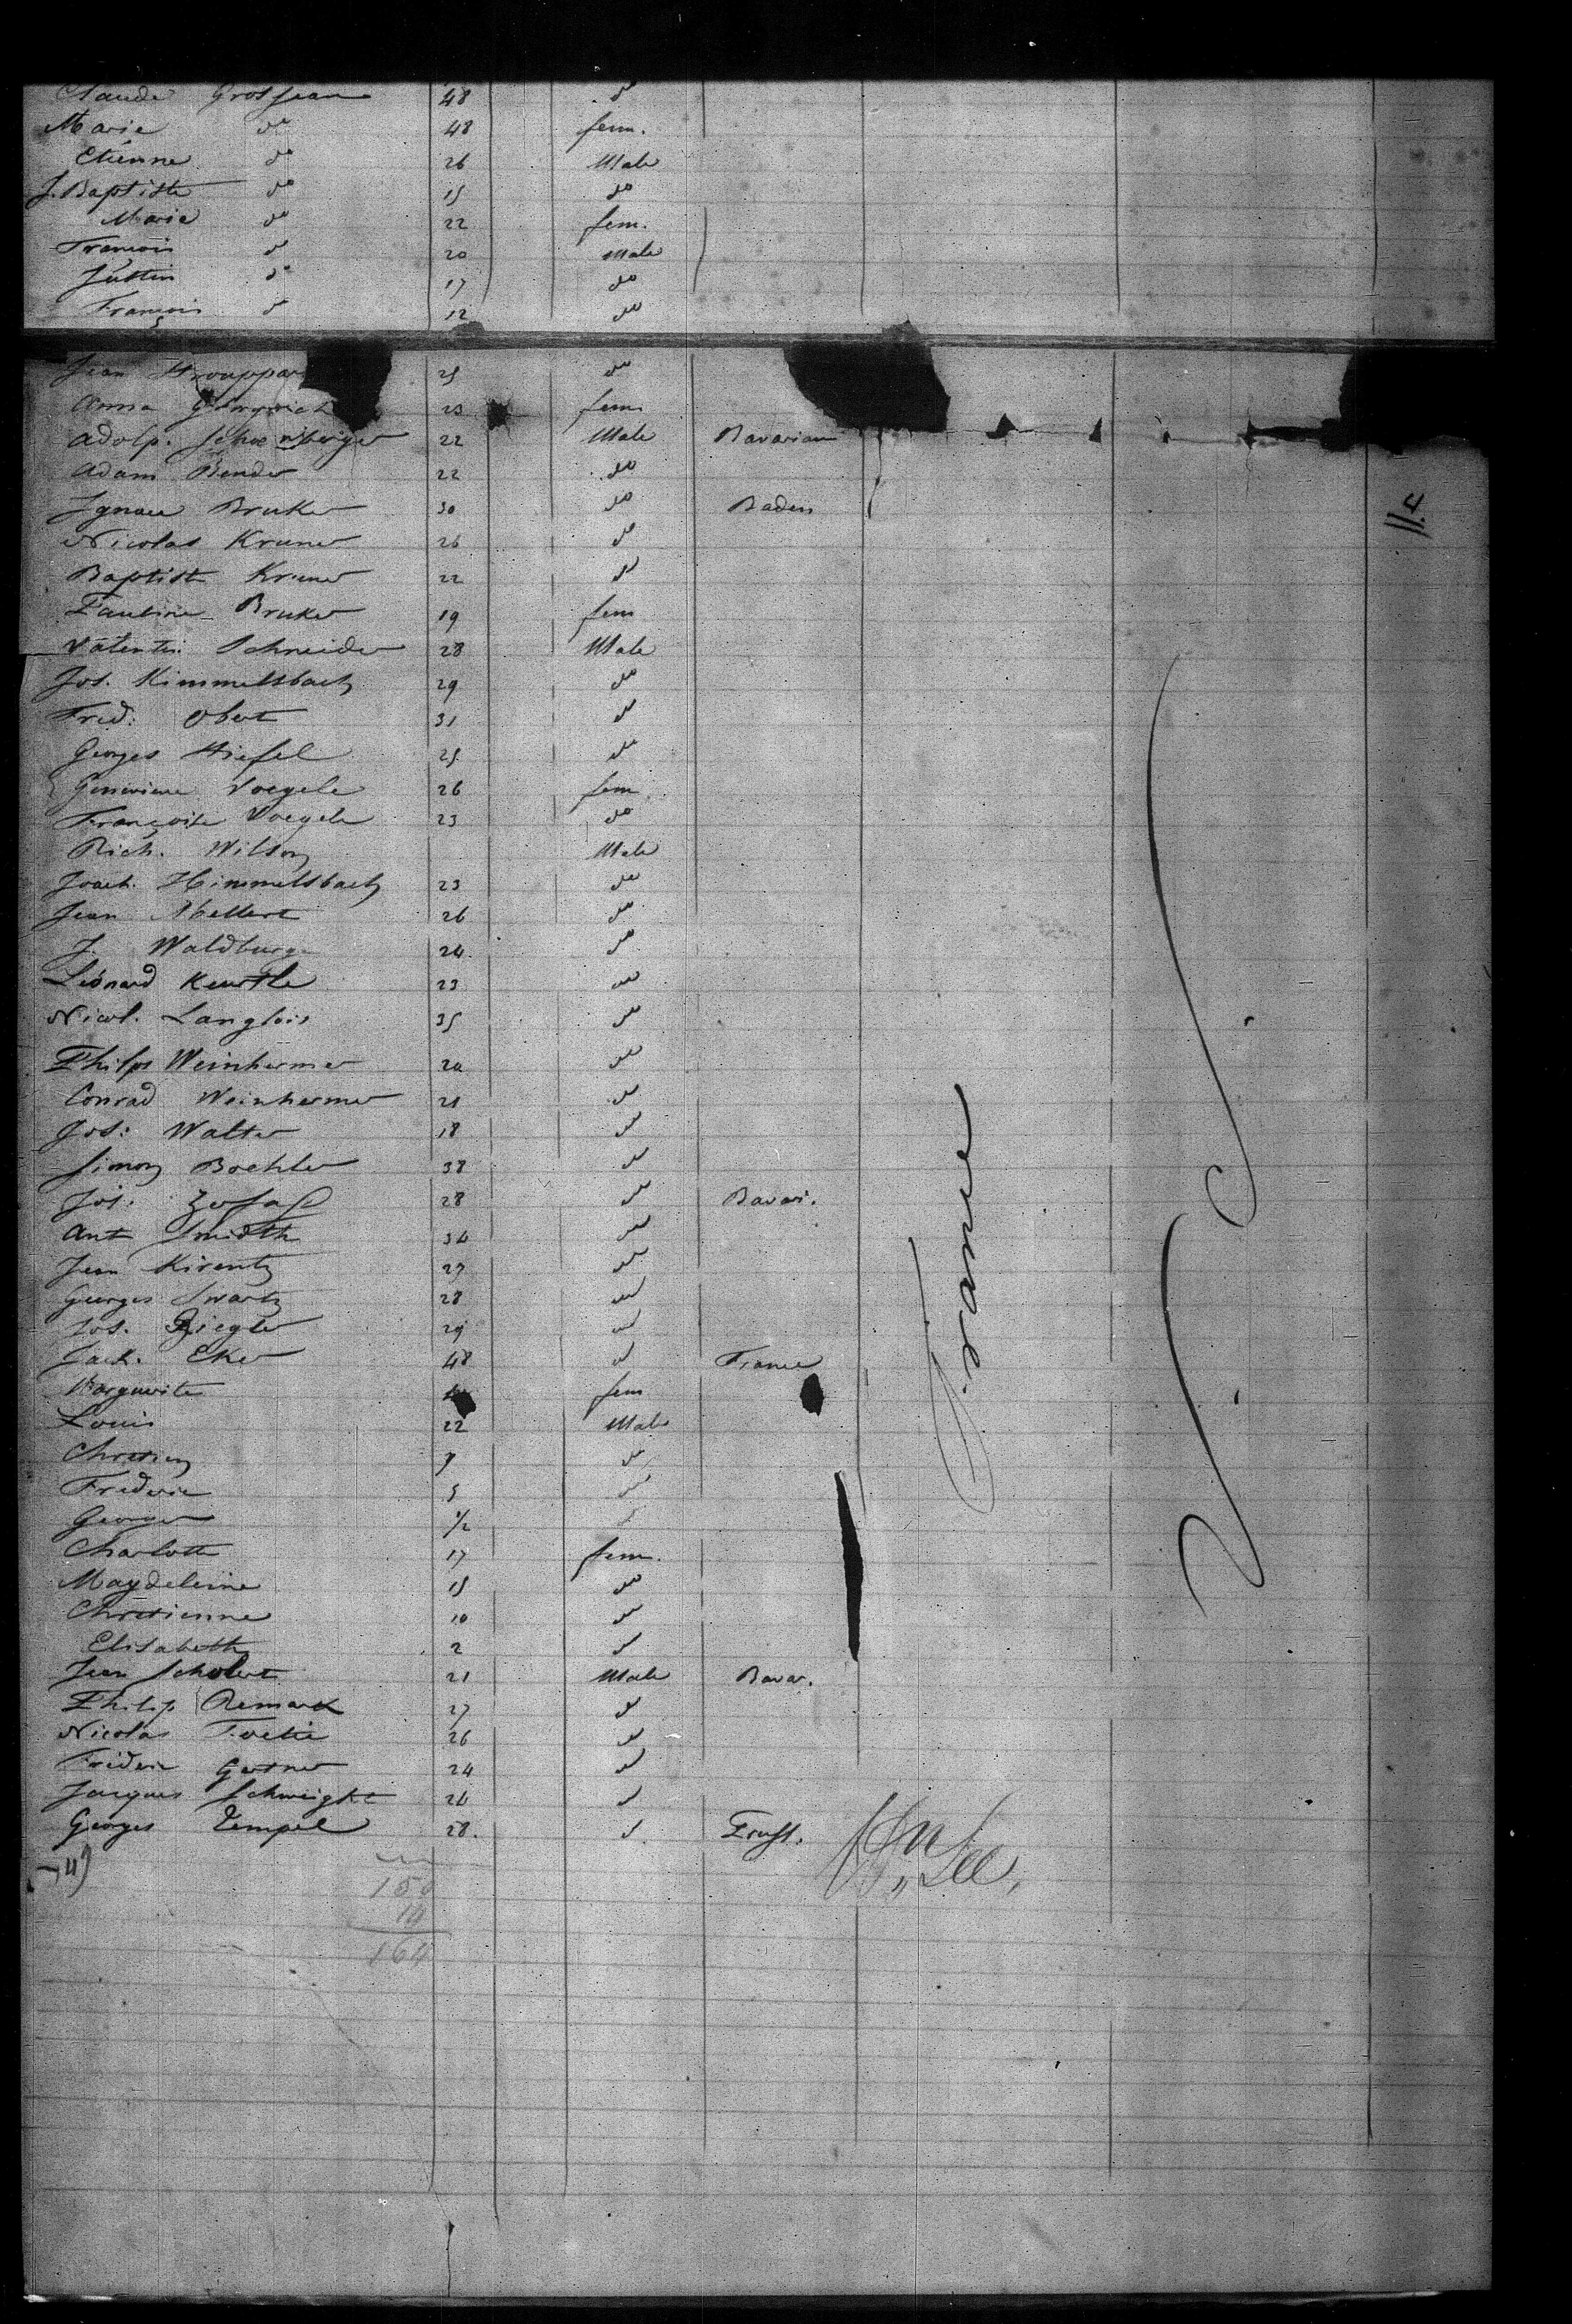 Claude Grosjean 48 do
Marie do 48 fem.
Etienne do 26 Male
J. Baptiste do 15 do
Marie do 22 fem.
François do 20 Male
Justin do 17 do
François do 12 do
Jean 25 do
Anna 23 fem
Adolp. Schoenberger 22 Male Bavarian
Adam Bender 22 do
Ignace Bruker 30 do Baden
Nicolas Kruner 26 do
Baptist Kruner 22 do
Pauline Bruker 19 fem
Valentin Schneider 28 Male
Jos. Himmelsbach 29 do
Fred: Obert 31 do
Georges Stiefel 25 do
Genevieve Voegele 26 fem
Françoise Voegele 23 do
Rich. Wilson Male
Joach. Himmelsbach 23 do
Jean Mellert 26 do
J. Waldburg 24 do
Léonard 23 do
Nicol. Langlois 35 do
Philps Weinhermer 20 do
Conrad Weinhermer 21 do
Jos: Walter 18 do
Simon Boehler 38 do
Jos: 28 do Bavar.
Ant Smidth 34 do
Jean Kirentz 27 do
Georges Swartz 28 do
Jos. Ziegler 29 do
Jack. Eker 48 do France
Marguerite fem
Louis 22 Male
Chretien 7 do
Frederic 5 do
Georges 1/2
Charlotte 17 fem.
Magdeleine 15 do
Chretienne 10 do
Elisabeth 2 do
Jean Scholert 21 Male Bavar.
Philip Remark 27 do
Nicolas 26 do
Frederic Gertner 24 do
Jacques Schweight 24 do
Georges Tempel 28. do Pruss.
France
U. S.
150
14
164